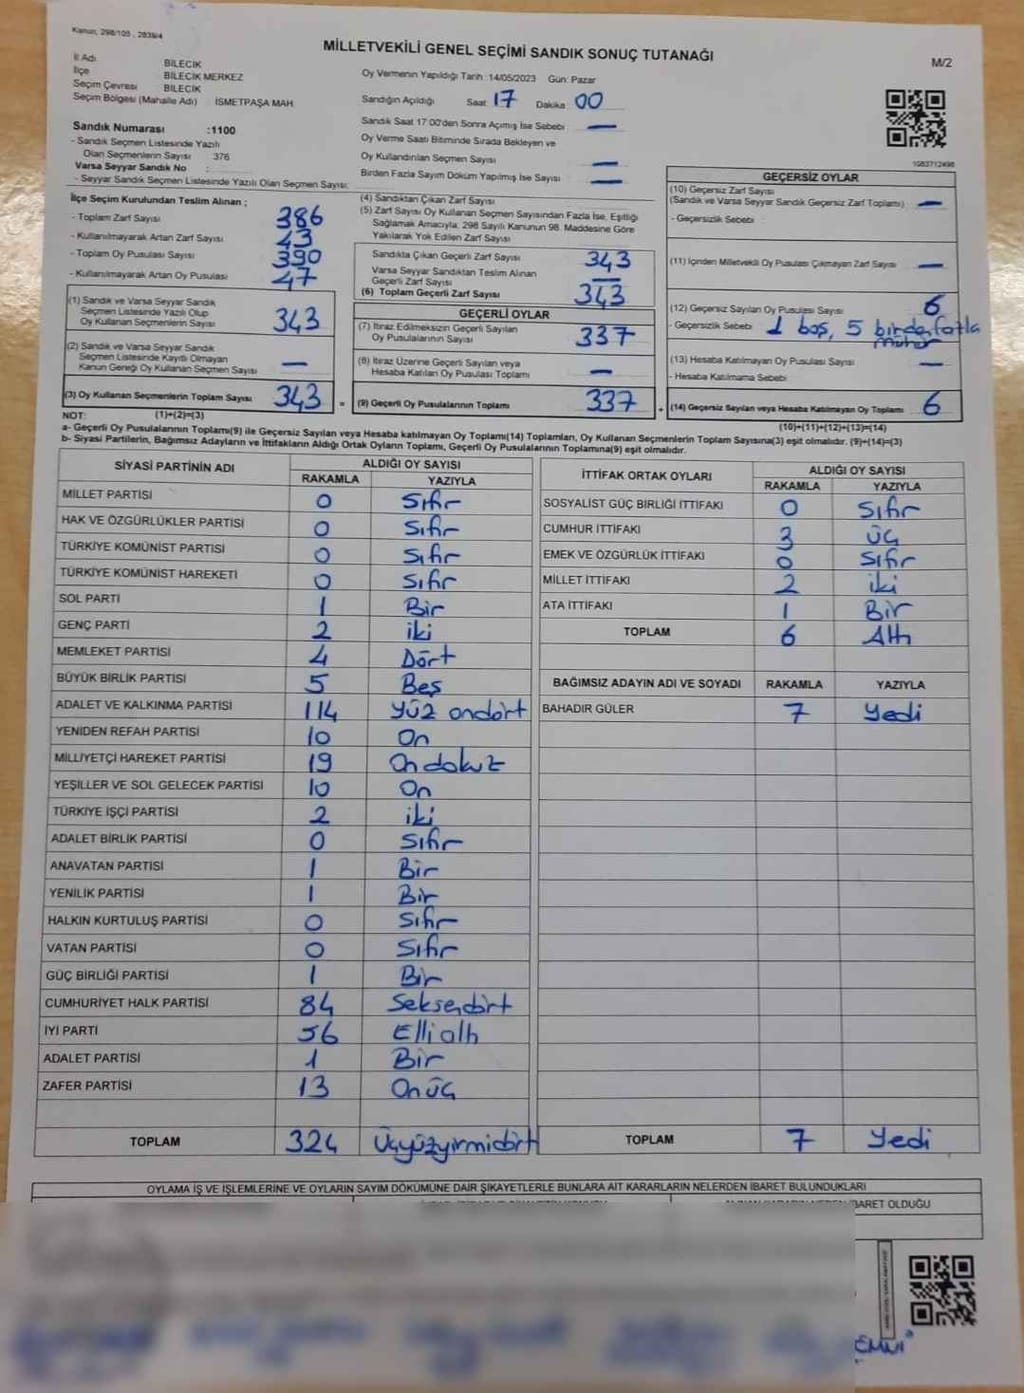 Kanun, 298/105 , 2839/4
MİLLETVEKİLİ GENEL SEÇİMİ SANDIK SONUÇ TUTANAĞI
M/2
İl Adı BİLECİK
İlçe BİLECİK MERKEZ
Seçim Çevresi BİLECİK
Seçim Bölgesi (Mahalle Adı) : İSMETPAŞA MAH.
Sandık Numarası :1100
- Sandık Seçmen Listesinde Yazılı
Olan Seçmenlerin Sayısı 376
Varsa Seyyar Sandık No :
- Seyyar Sandık Seçmen Listesinde Yazılı Olan Seçmen Sayısı:
Oy Vermenin Yapıldığı Tarih :14/05/2023 Gün: Pazar
Sandığın Açıldığı Saat: 17 Dakika: 00
Sandık Saat 17.00'den Sonra Açımış İse Sebebi : —
Oy Verme Saati Bitiminde Sırada Bekleyen ve
Oy Kullandırılan Seçmen Sayısı —
Birden Fazla Sayım Döküm Yapılmış İse Sayısı —
1083712498
İlçe Seçim Kurulundan Teslim Alınan ;
- Toplam Zarf Sayısı 386
- Kullanılmayarak Artan Zarf Sayısı 43
- Toplam Oy Pusulası Sayısı 390
- Kullanılmayarak Artan Oy Pusulası 47
(1) Sandık ve Varsa Seyyar Sandık
Seçmen Listesinde Yazılı Olup
Oy Kullanan Seçmenlerin Sayısı 343
(2) Sandık ve Varsa Seyyar Sandık
Seçmen Listesinde Kayıtlı Olmayan
Kanun Gereği Oy Kullanan Seçmen Sayısı —
(3) Oy Kullanan Seçmenlerin Toplam Sayısı 343 =
(4) Sandıktan Çıkan Zarf Sayısı
(5) Zarf Sayısı Oy Kullanan Seçmen Sayısından Fazla İse, Eşitliği
Sağlamak Amacıyla; 298 Sayılı Kanunun 98. Maddesine Göre
Yakılarak Yok Edilen Zarf Sayısı
Sandıkta Çıkan Geçerli Zarf Sayısı 343
Varsa Seyyar Sandıktan Teslim Alınan
Geçerli Zarf Sayısı —
(6) Toplam Geçerli Zarf Sayısı 343
GEÇERLİ OYLAR
(7) İtiraz Edilmeksizin Geçerli Sayılan
Oy Pusulalarının Sayısı 337
(8) İtiraz Üzerine Geçerli Sayılan veya
Hesaba Katılan Oy Pusulası Toplamı —
(9) Geçerli Oy Pusulalarının Toplamı 337 +
GEÇERSİZ OYLAR
(10) Geçersiz Zarf Sayısı
(Sandık ve Varsa Seyyar Sandık Geçersiz Zarf Toplamı) —
- Geçersizlik Sebebi :
(11) İçinden Milletvekili Oy Pusulası Çıkmayan Zarf Sayısı —
(12) Geçersiz Sayılan Oy Pusulası Sayısı 6
- Geçersizlik Sebebi : 1 boş, 5 birden fazla
mühür
(13) Hesaba Katılmayan Oy Pusulası Sayısı —
- Hesaba Katılmama Sebebi
(14) Geçersiz Sayılan veya Hesaba Katılmayan Oy Toplamı 6
NOT: (1)+(2)=(3)
(10)+(11)+(12)+(13)=(14)
a- Geçerli Oy Pusulalarının Toplamı(9) ile Geçersiz Sayılan veya Hesaba katılmayan Oy Toplamı(14) Toplamları, Oy Kullanan Seçmenlerin Toplam Sayısına(3) eşit olmalıdır. (9)+(14)=(3)
b- Siyasi Partilerin, Bağımsız Adayların ve İttifakların Aldığı Ortak Oyların Toplamı, Geçerli Oy Pusulalarının Toplamına(9) eşit olmalıdır.
SİYASİ PARTİNİN ADI ALDIĞI OY SAYISI
RAKAMLA YAZIYLA
MİLLET PARTİSİ 0 Sıfır
HAK VE ÖZGÜRLÜKLER PARTİSİ 0 Sıfır
TÜRKİYE KOMÜNİST PARTİSİ 0 Sıfır
TÜRKİYE KOMÜNİST HAREKETİ 0 Sıfır
SOL PARTİ 1 Bir
GENÇ PARTİ 2 iki
MEMLEKET PARTİSİ 4 Dört
BÜYÜK BİRLİK PARTİSİ 5 Beş
ADALET VE KALKINMA PARTİSİ 114 yüz ondört
YENİDEN REFAH PARTİSİ 10 On
MİLLİYETÇİ HAREKET PARTİSİ 19 On dokuz
YEŞİLLER VE SOL GELECEK PARTİSİ 10 On
TÜRKİYE İŞÇİ PARTİSİ 2 iki
ADALET BİRLİK PARTİSİ 0 Sıfır
ANAVATAN PARTİSİ 1 Bir
YENİLİK PARTİSİ 1 Bir
HALKIN KURTULUŞ PARTİSİ 0 Sıfır
VATAN PARTİSİ 0 Sıfır
GÜÇ BİRLİĞİ PARTİSİ 1 Bir
CUMHURİYET HALK PARTİSİ 84 Seksendört
İYİ PARTİ 56 Elli altı
ADALET PARTİSİ 1 Bir
ZAFER PARTİSİ 13 Onüç
TOPLAM 324 Üçyüzyirmidört
İTTİFAK ORTAK OYLARI ALDIĞI OY SAYISI
RAKAMLA YAZIYLA
SOSYALİST GÜÇ BİRLİĞİ İTTİFAKI 0 Sıfır
CUMHUR İTTİFAKI 3 Üç
EMEK VE ÖZGÜRLÜK İTTİFAKI 0 Sıfır
MİLLET İTTİFAKI 2 iki
ATA İTTİFAKI 1 Bir
TOPLAM 6 Altı
BAĞIMSIZ ADAYIN ADI VE SOYADI RAKAMLA YAZIYLA
BAHADIR GÜLER 7 Yedi
TOPLAM 7 Yedi
OYLAMA İŞ VE İŞLEMLERİNE VE OYLARIN SAYIM DÖKÜMÜNE DAİR ŞİKAYETLERLE BUNLARA AİT KARARLARIN NELERDEN İBARET BULUNDUKLARI
İBARET OLDUĞU